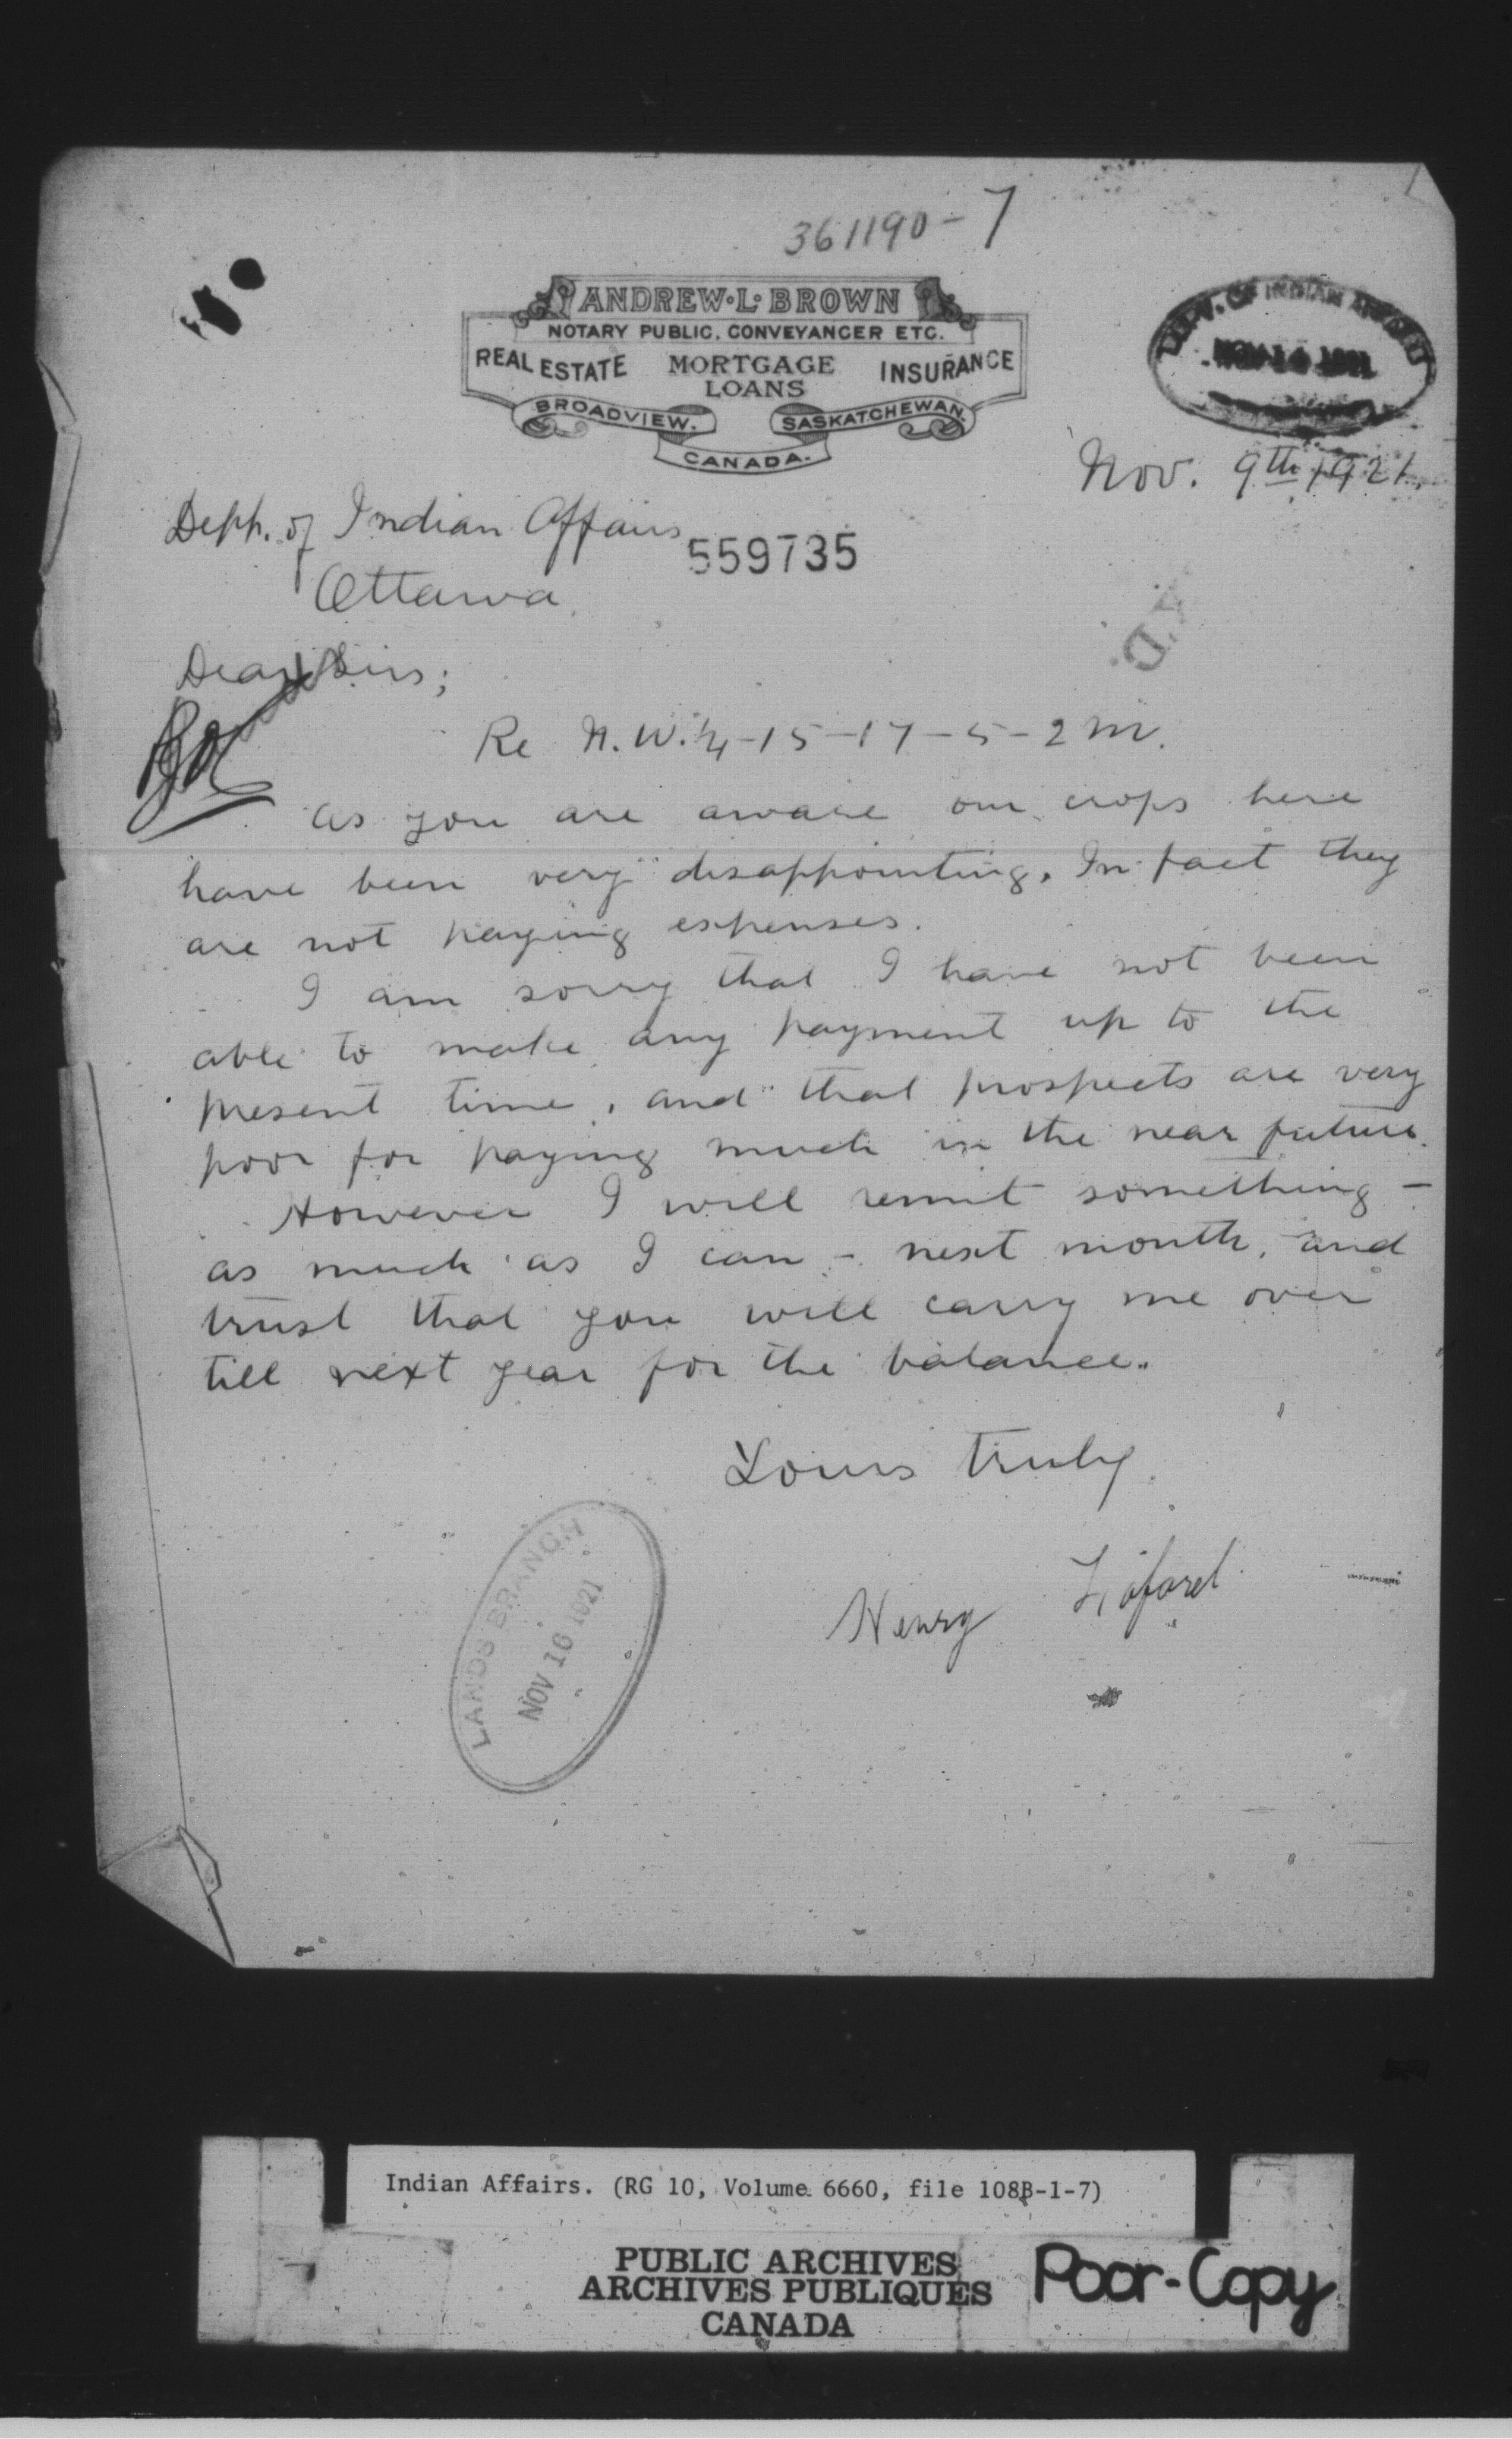 361190-7
ANDREW·L·BROWN
NOTARY PUBLIC, CONVEYANCER ETC.
REAL ESTATE MORTGAGE LOANS INSURANCE
BROADVIEW. SASKATCHEWAN.
CANADA.
DEPT. OF INDIAN AFFAIRS
NOV 14 1921
Nov. 9th 1921.
Deph. of Indian Affairs
559735
Ottawa
Dear Sirs;
Re N.W.¼-15-17-5-2 M.
As you are aware our crops here
have been very disappointing. In fact they
are not paying expenses.
I am sorry that I have not been
able to make any payment up to the
present time, and that prospects are very
poor for paying much in the near future.
However I will remit something -
as much as I can - next month, and
trust that you will carry me over
till next year for the balance.
Yours truly
Henry
LANDS BRANCH
NOV 16 1921
Indian Affairs. (RG 10, Volume 6660, file 108B-1-7)
PUBLIC ARCHIVES
ARCHIVES PUBLIQUES
CANADA
Poor-Copy